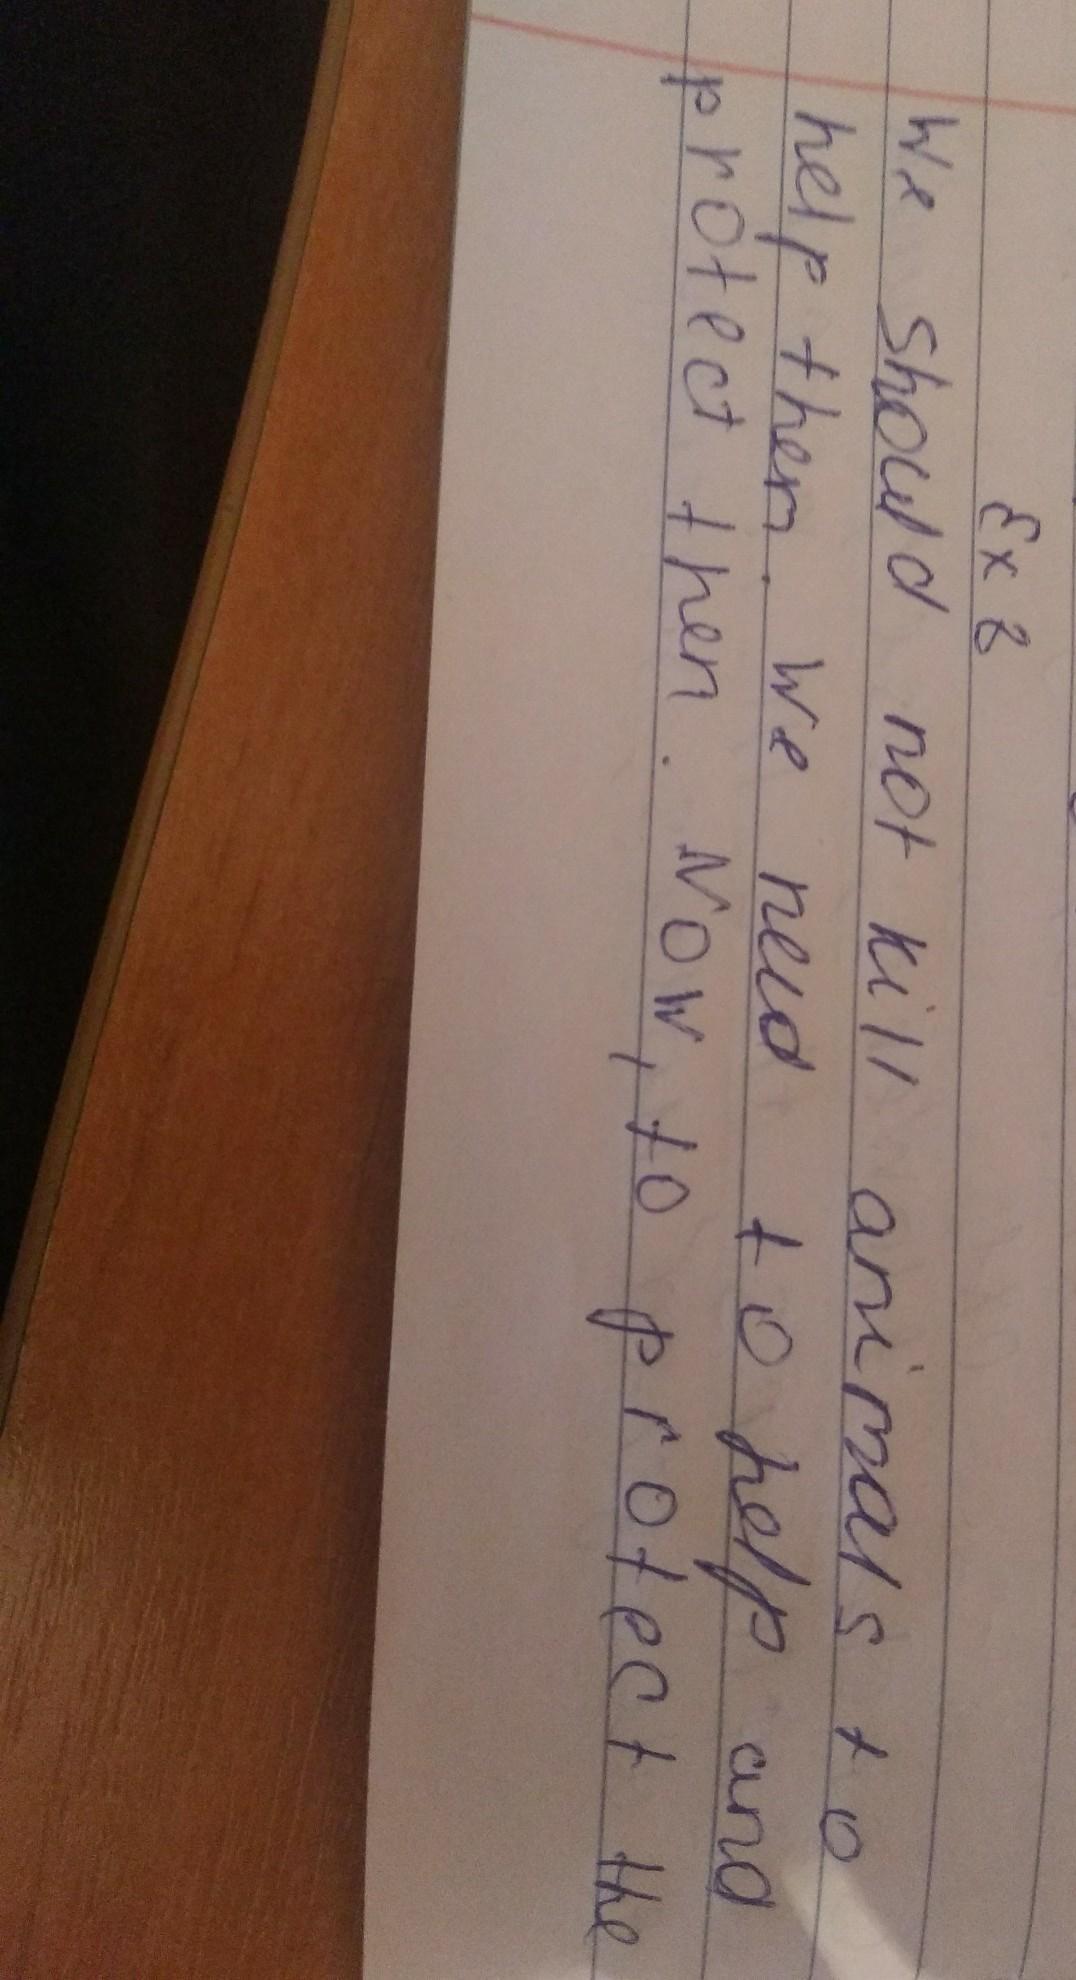 Ex 8
We should not kill animals to
help then. We need to help and
protect then. Now, to protect the